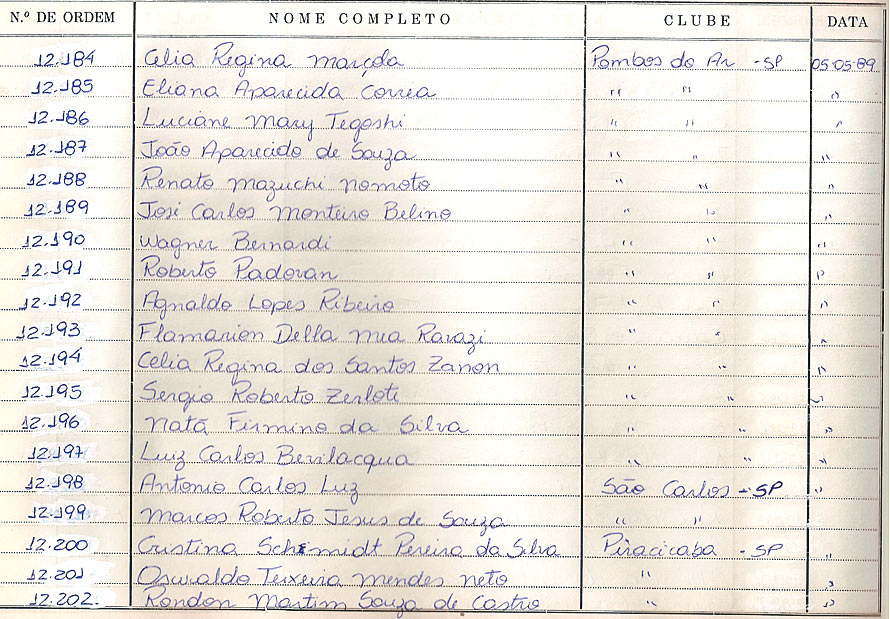 N.º DE ORDEM NOME COMPLETO CLUBE DATA
12.184 Celia Regina Marçola Pombos do Ar - SP 05.05.89
12.185 Eliana Aparecida Correa " " "
12.186 Luciane Mary Tegoshi " " "
12.187 João Aparecido de Souza " " "
12.188 Renato Mazuchi Nomoto " " "
12.189 José Carlos Monteiro Belino " " "
12.190 Wagner Bernardi " " "
12.191 Roberto Padovan " " "
12.192 Agnaldo Lopes Ribeiro " " "
12.193 Flamarion Della Mea Ravazi " " "
12.194 Celia Regina dos Santos Zanon " " "
12.195 Sergio Roberto Zerloti " " "
12.196 Natã Firmino da Silva " " "
12.197 Luiz Carlos Bevilacqua " " "
12.198 Antonio Carlos Luz São Carlos - SP "
12.199 Marcos Roberto Jesus de Souza " "
12.200 Cristina Schimidt Pereira da Silva Piracicaba - SP "
12.201 Oswaldo Teixeira Mendes Neto " "
12.202. Rondon Martim Souza de Castro " "